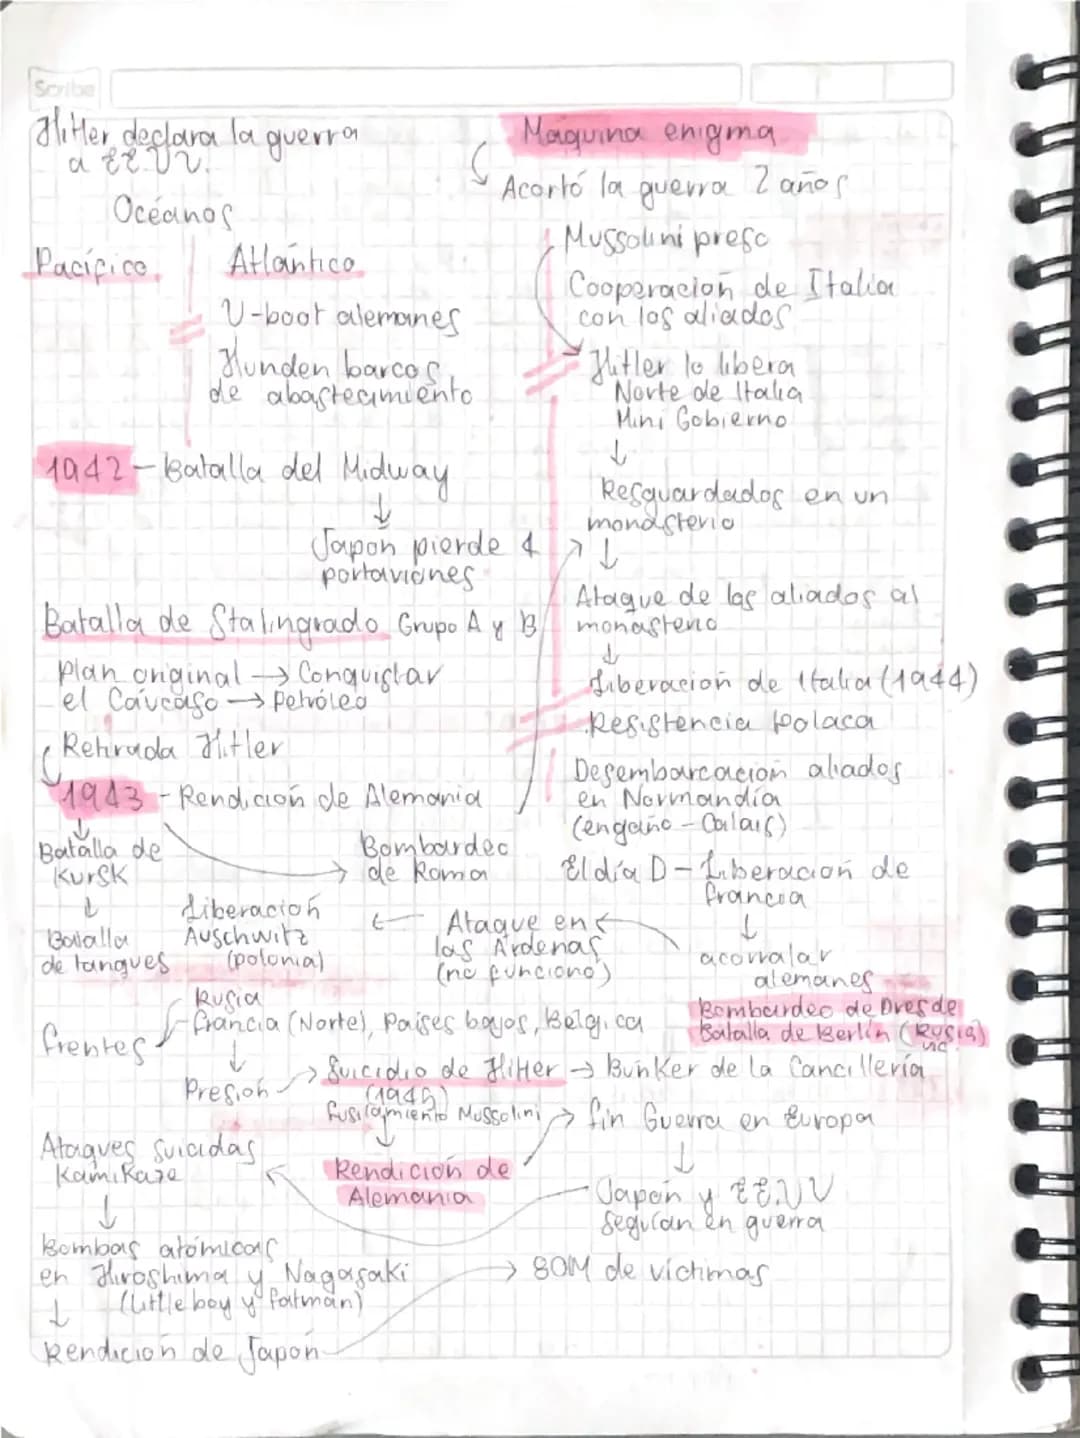 Scribe
Hitler declara la guerra
a EE.UU.
Océanos
Pacífico
Atlántico
U-boot alemanes
Hunden barcos
de abastecimiento
1942 - Batalla del Midway
↓
Japón pierde 4
portaviones
Batalla de Stalingrado Grupo A y B
Plan original → Conquistar
el Caúcaso → Petróleo
Retirada Hitler
1943 - Rendición de Alemania
Batalla de
Kursk
↓
Batalla
de tanques
Bombardeo
de Roma
Maquina enigma
Acortó la guerra 2 años
Mussolini preso
Cooperación de Italia
con los aliados
Hitler lo libera
Norte de Italia
Mini Gobierno
↓
Resguardados en un
monasterio
↓
Ataque de los aliados al
monasterio
↓
Liberación de Italia (1944)
Resistencia polaca
Desembarcación aliados
en Normandía
(engaño - Calais)
El día D - Liberación de
francia
↓
acorralar
alemanes
Ataque en
las Ardenas
(no funcionó)
Liberación
Auschwitz
(polonia)
Bombardeo de Dresde
Batalla de Berlín (Rusia)
frentes
Rusia
francia (Norte), Países bajos, Belgica
↓
Presión → Suicidio de Hitler → Búnker de la Cancillería
(1945)
fusilamiento Mussolini
↓
Rendición de
Alemania
→ fin Guerra en Europa
↓
Japón y EE.UU
seguían en guerra
Ataques suicidas
Kamikaze
↓
Bombas atómicas
en Hiroshima y Nagasaki
(Little boy y fatman)
↓
Rendición de Japón
→ 80M de víctimas